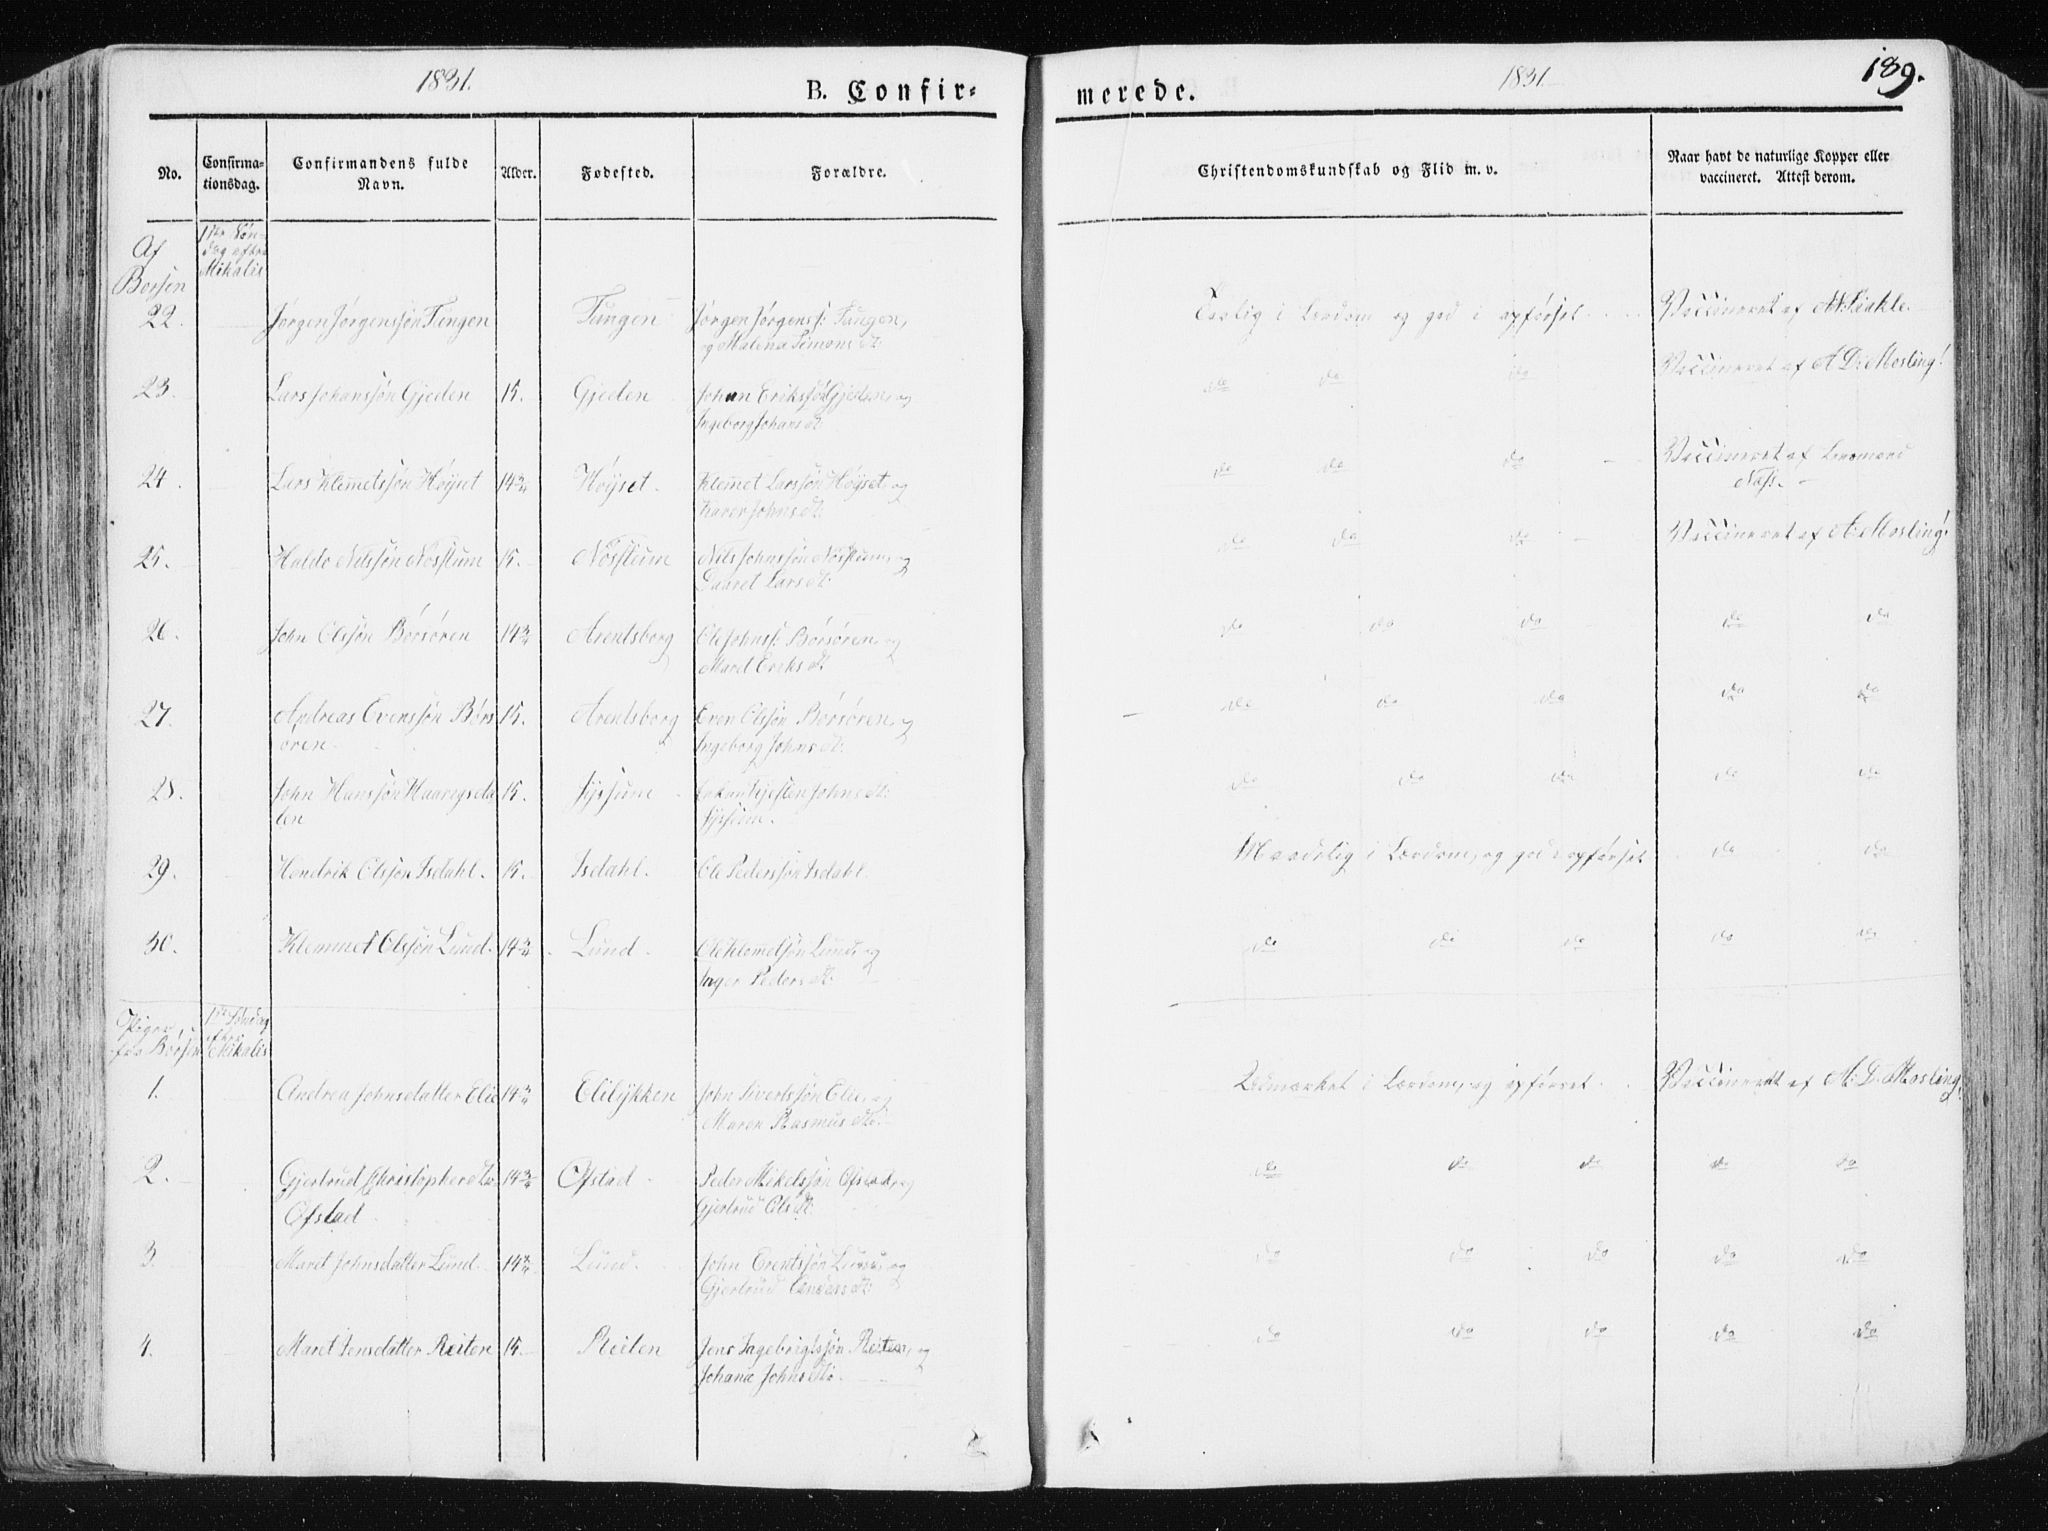 1831.
B. Confir-
merede.
1831.
189.
No.
Confirma-
tionsdag.
Confirmandens fulde
Navn.
Alder.
Fødested.
Forældre.
Christendomskundskab og Flid m. v.
Naar havt de naturlige Kopper eller
vaccineret. Attest derom.
Af
Børsen
1ste Søn-
dag efter
Mikalis
22. Jørgen Jørgenssøn Tungen Tungen Jørgen Jørgenss: Tungen,
og Malena Simons dt:
i Lærdom og god i opførsel Vaccineret af
23. Lars Johanssøn Gjeden 15. Gjeden Johan Erikssøn Gjeden, og
Ingeborg Johans dt:
do do do Vaccineret af A D: Mosling!
24. Lars Klemetsøn Høyset 14 3/4 Høyset. Klemet Larssøn Høyset, og
Karen Johns dt:
do do do Vaccineret af Lensmand
Næss.
25. Haldo Nilssøn Nøstum 15. Nøstum Nils Johnssøn Nøstum, og
Daaret Lars dt:
do do do Vaccineret af A: Mosling!
26. John Olssøn Børsøren 14 3/4 Arentsborg Ole Johnss: Børsøren, og
Maret Eriks dt:
do do do do do
27. Andreas Evenssøn Børs 15. Arentsborg Even Olssøn Børsøren, og
øren
Ingeborg Johns dt:
do do do do do
28. John Hanssøn 15.
len
do do do do do
29. Hendrik Olssøn Isdahl. 15. Isdahl. Ole Pederssøn Isdahl
Maadelig i Lærdom, og god opførsel do do
30. Klemmet Olssøn Lund. 14 3/4 Lund. Ole Klemetsøn Lund, og
Inger Peders dt:
do do do do do
Piger
fra Børsen
1ste Søndag
efter
Mikalis
1. Andrea Johnsdatter Elie 14 3/4 Elilykken John Sivertssøn Elie, og
Maren Rasmus dt:
Udmærket i Lærdom, og opførsel Vaccineret af A: D. Mosling!
2. Gjertrud 14 3/4 Ofstad Peder Mikelssøn Ofstad, og
Ofstad
Gjertrud Ols dt:
do do do do do
3. Maret Johnsdatter Lund. 14 3/4 Lund. John Lund, og
Gjertrud dt:
do do do do do
4. Maret Jensdatter Reiten 15. Reiten Jens Ingebrigtssøn Reiten, og
Johana Johns dt:
do do do do do